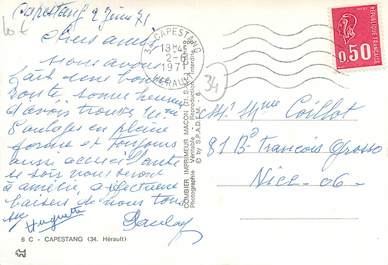 Capestang 2 juin 71
Chers amis
Nous avons
fait une bonne
route, sommes heureux
d'avoir trouvé
en pleine
forme et toujours
aussi
ce soir nous serons
à affectueux
baisers de nous tous
Huguette
34 CAPESTANG
18H45
2-6
1971
HÉRAULT
RÉPUBLIQUE FRANÇAISE
0,50
34
Mr Mme Coillot
81 Bd François Grosso
Nice - 06 -
COMBIER IMPRIMEUR MACON
Photographie Véritable - Reproduction interdite
© by S.P.A.D.E.M.
6 C - CAPESTANG (34. Hérault)